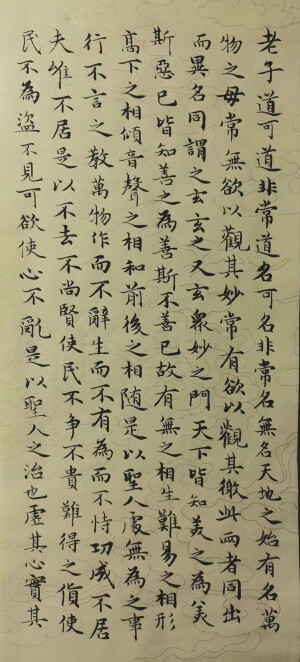 老子道可道非常道名可名非常名無名天地之始有名萬
物之母常無欲以觀其妙常有欲以觀其徼此兩者同出
而異名同謂之玄玄之又玄衆妙之門天下皆知美之為美
斯惡已皆知善之為善斯不善已故有無之相生難易之相形
高下之相傾音聲之相和前後之相随是以聖人處無為之事
行不言之教萬物作而不辭生而不有為而不恃功成不居
夫唯不居是以不去不尚賢使民不争不貴難得之貨使
民不為盜不見可欲使心不亂是以聖人之治也虛其心實其